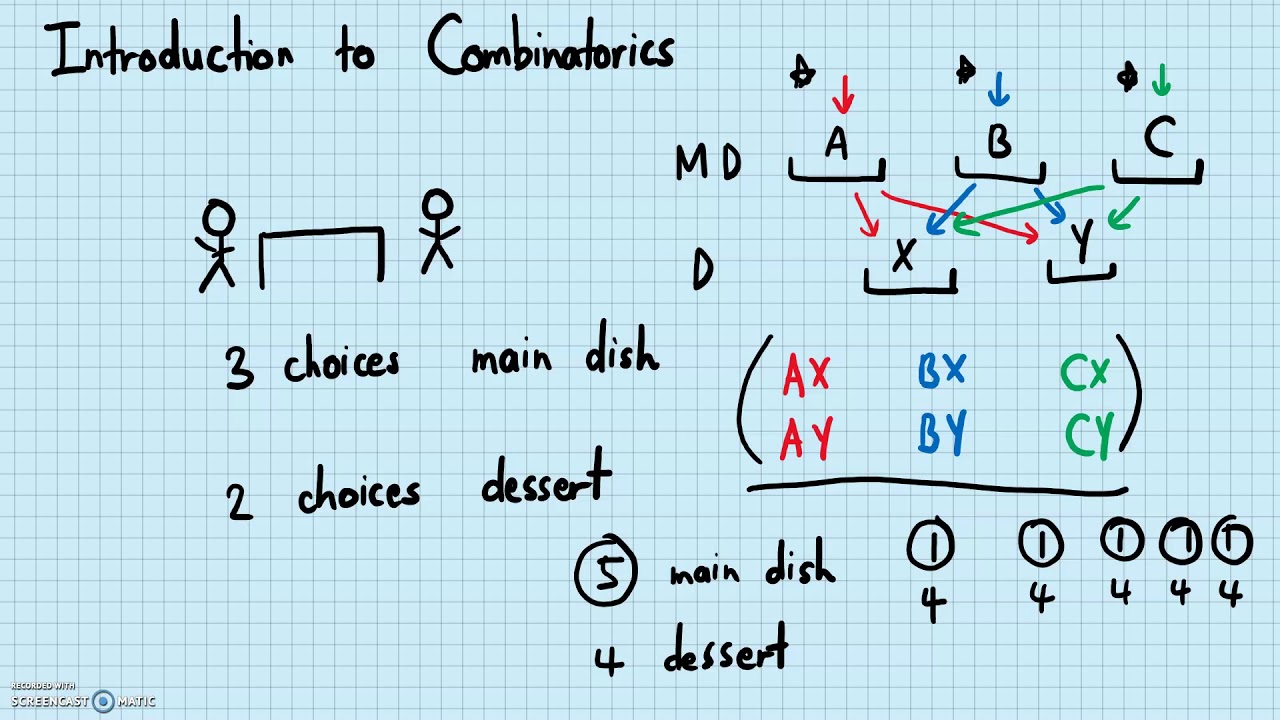 Introduction to Combinatorics
A B C
M D
X Y
D
3 choices main dish
AX BX CX
AY BY CY
2 choices dessert
5 main dish
1 1 1 1 1
4 4 4 4 4
4 dessert
RECORDED WITH
SCREENCAST MATIC